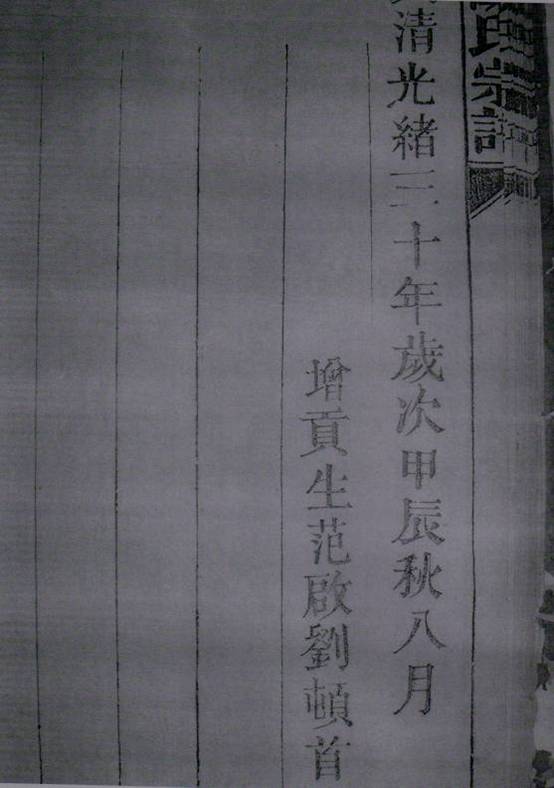 宗譜
清光緒三十年歲次甲辰秋八月
增貢生范啟劉頓首